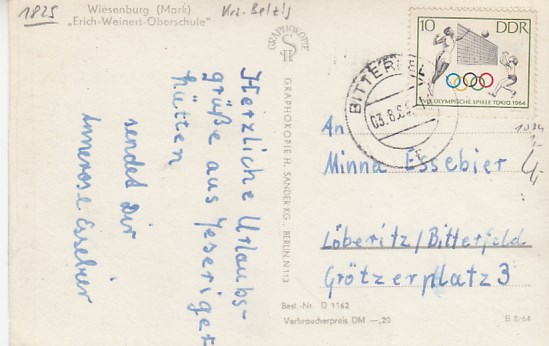 1825
Wiesenburg (Mark)
„Erich-Weinert-Oberschule"
Krs. Belzig
GRAPHOKOPIE
GRAPHOKOPIE H. SANDER KG., BERLIN N 113
10 DDR
XVIII. OLYMPISCHE SPIELE TOKIO 1964
BITTERFELD
03.8.6
Herzliche Urlaubs-
grüße aus Jeseriger
hütten
sendet Dir
Annerose Essebier
An
Minna Essebier
Löberitz/Bitterfeld
Grötzerplatz 3
Best.-Nr. D 1162
Verbraucherpreis DM —,20
B 8/64